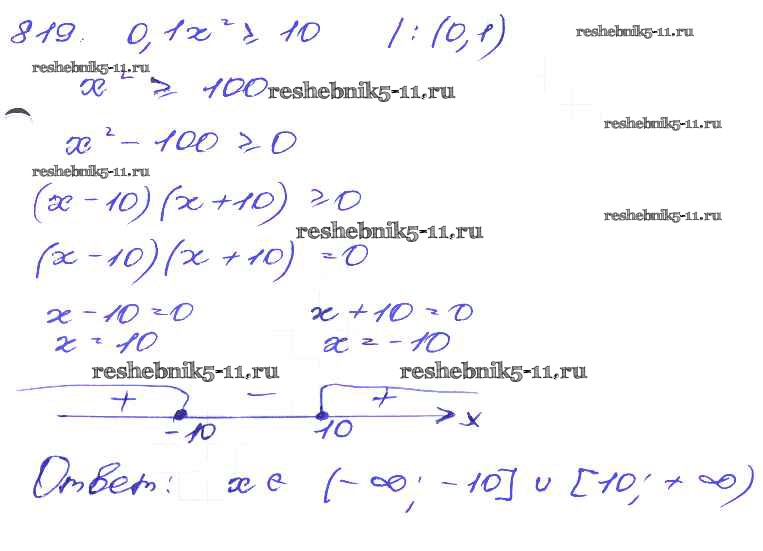 819. 0,1x² ≥ 10 /:(0,1) reshebnik5-11.ru
reshebnik5-11.ru
x² ≥ 100 reshebnik5-11.ru
reshebnik5-11.ru
x² - 100 ≥ 0
reshebnik5-11.ru
(x - 10)(x + 10) ≥ 0
reshebnik5-11.ru
reshebnik5-11.ru
(x - 10)(x + 10) = 0
x - 10 = 0 x + 10 = 0
x = 10 x = -10
reshebnik5-11.ru reshebnik5-11.ru
+ - +
-10 10 x
Ответ: x ∈ (-∞; -10] ∪ [10; +∞)